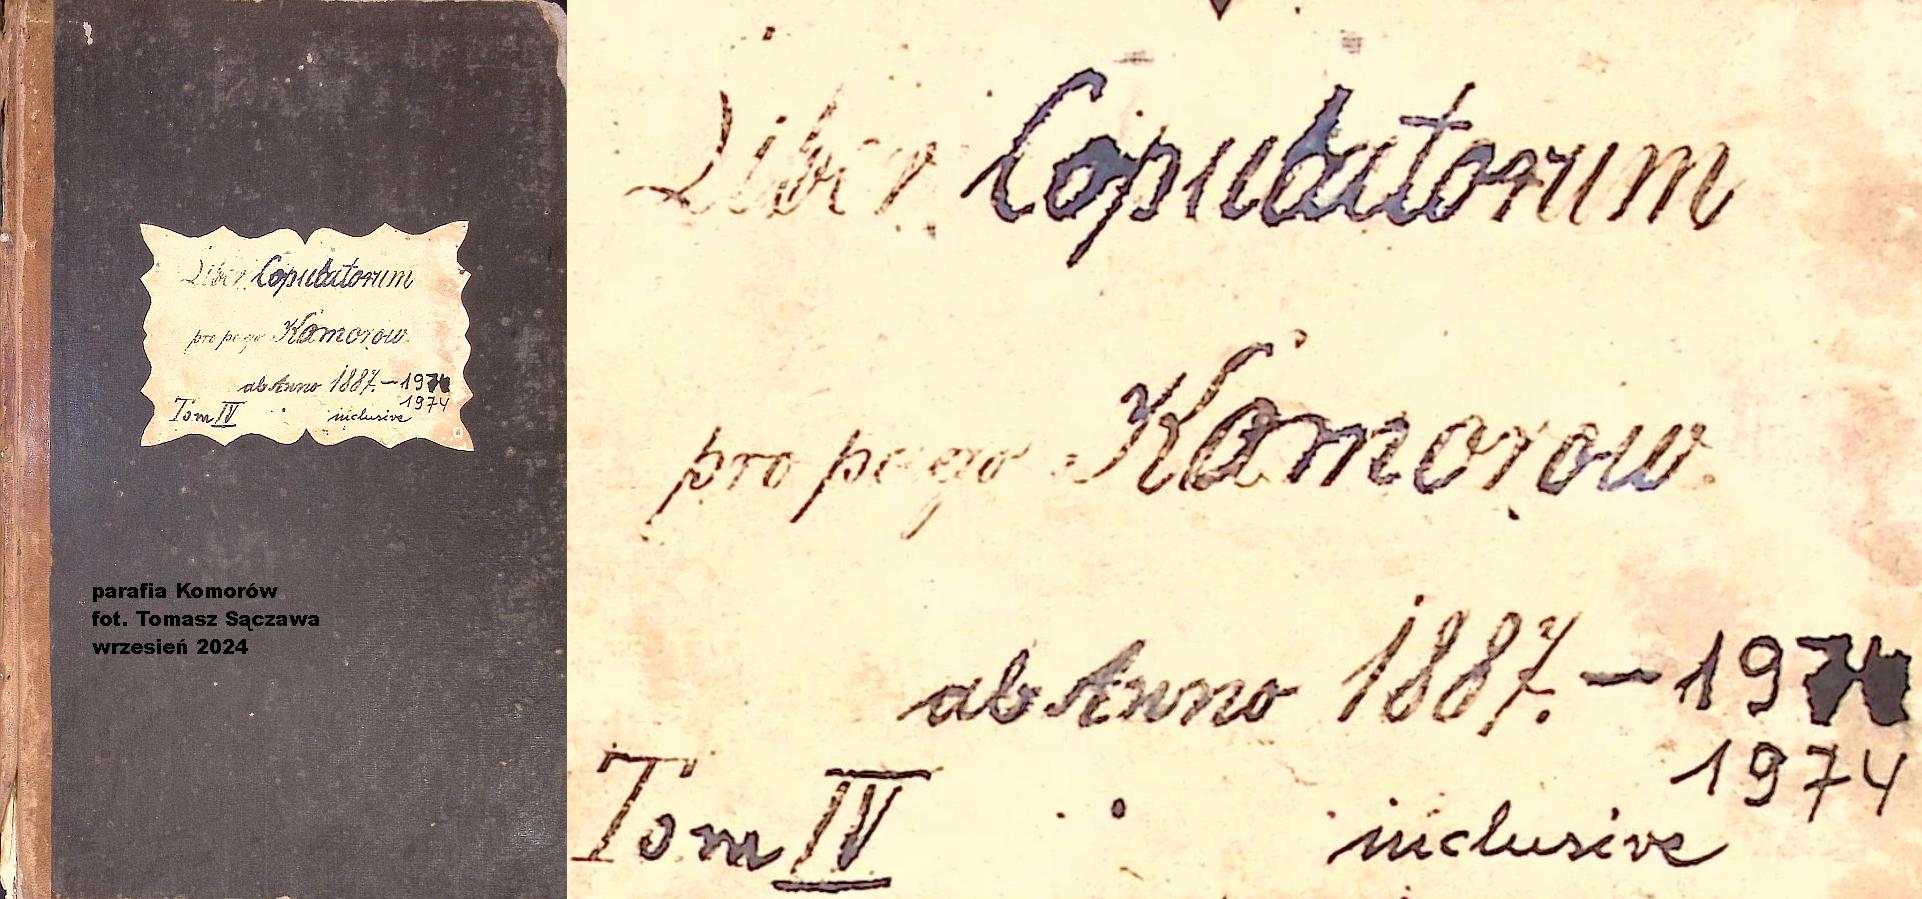 Liber Copulatorum
pro pago Komorow.
ab Anno 1887. — 19
1974
Tom IV inclusive
parafia Komorów
fot. Tomasz Sączawa
wrzesień 2024
Liber Copulatorum
pro pago Komorow.
ab Anno 1887. — 19
1974
Tom IV inclusive